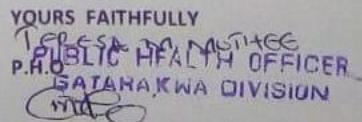 YOURS FAITHFULLY
TERESA
PUBLIC HEALTH OFFICER
P.H.O
GATARAKWA DIVISION